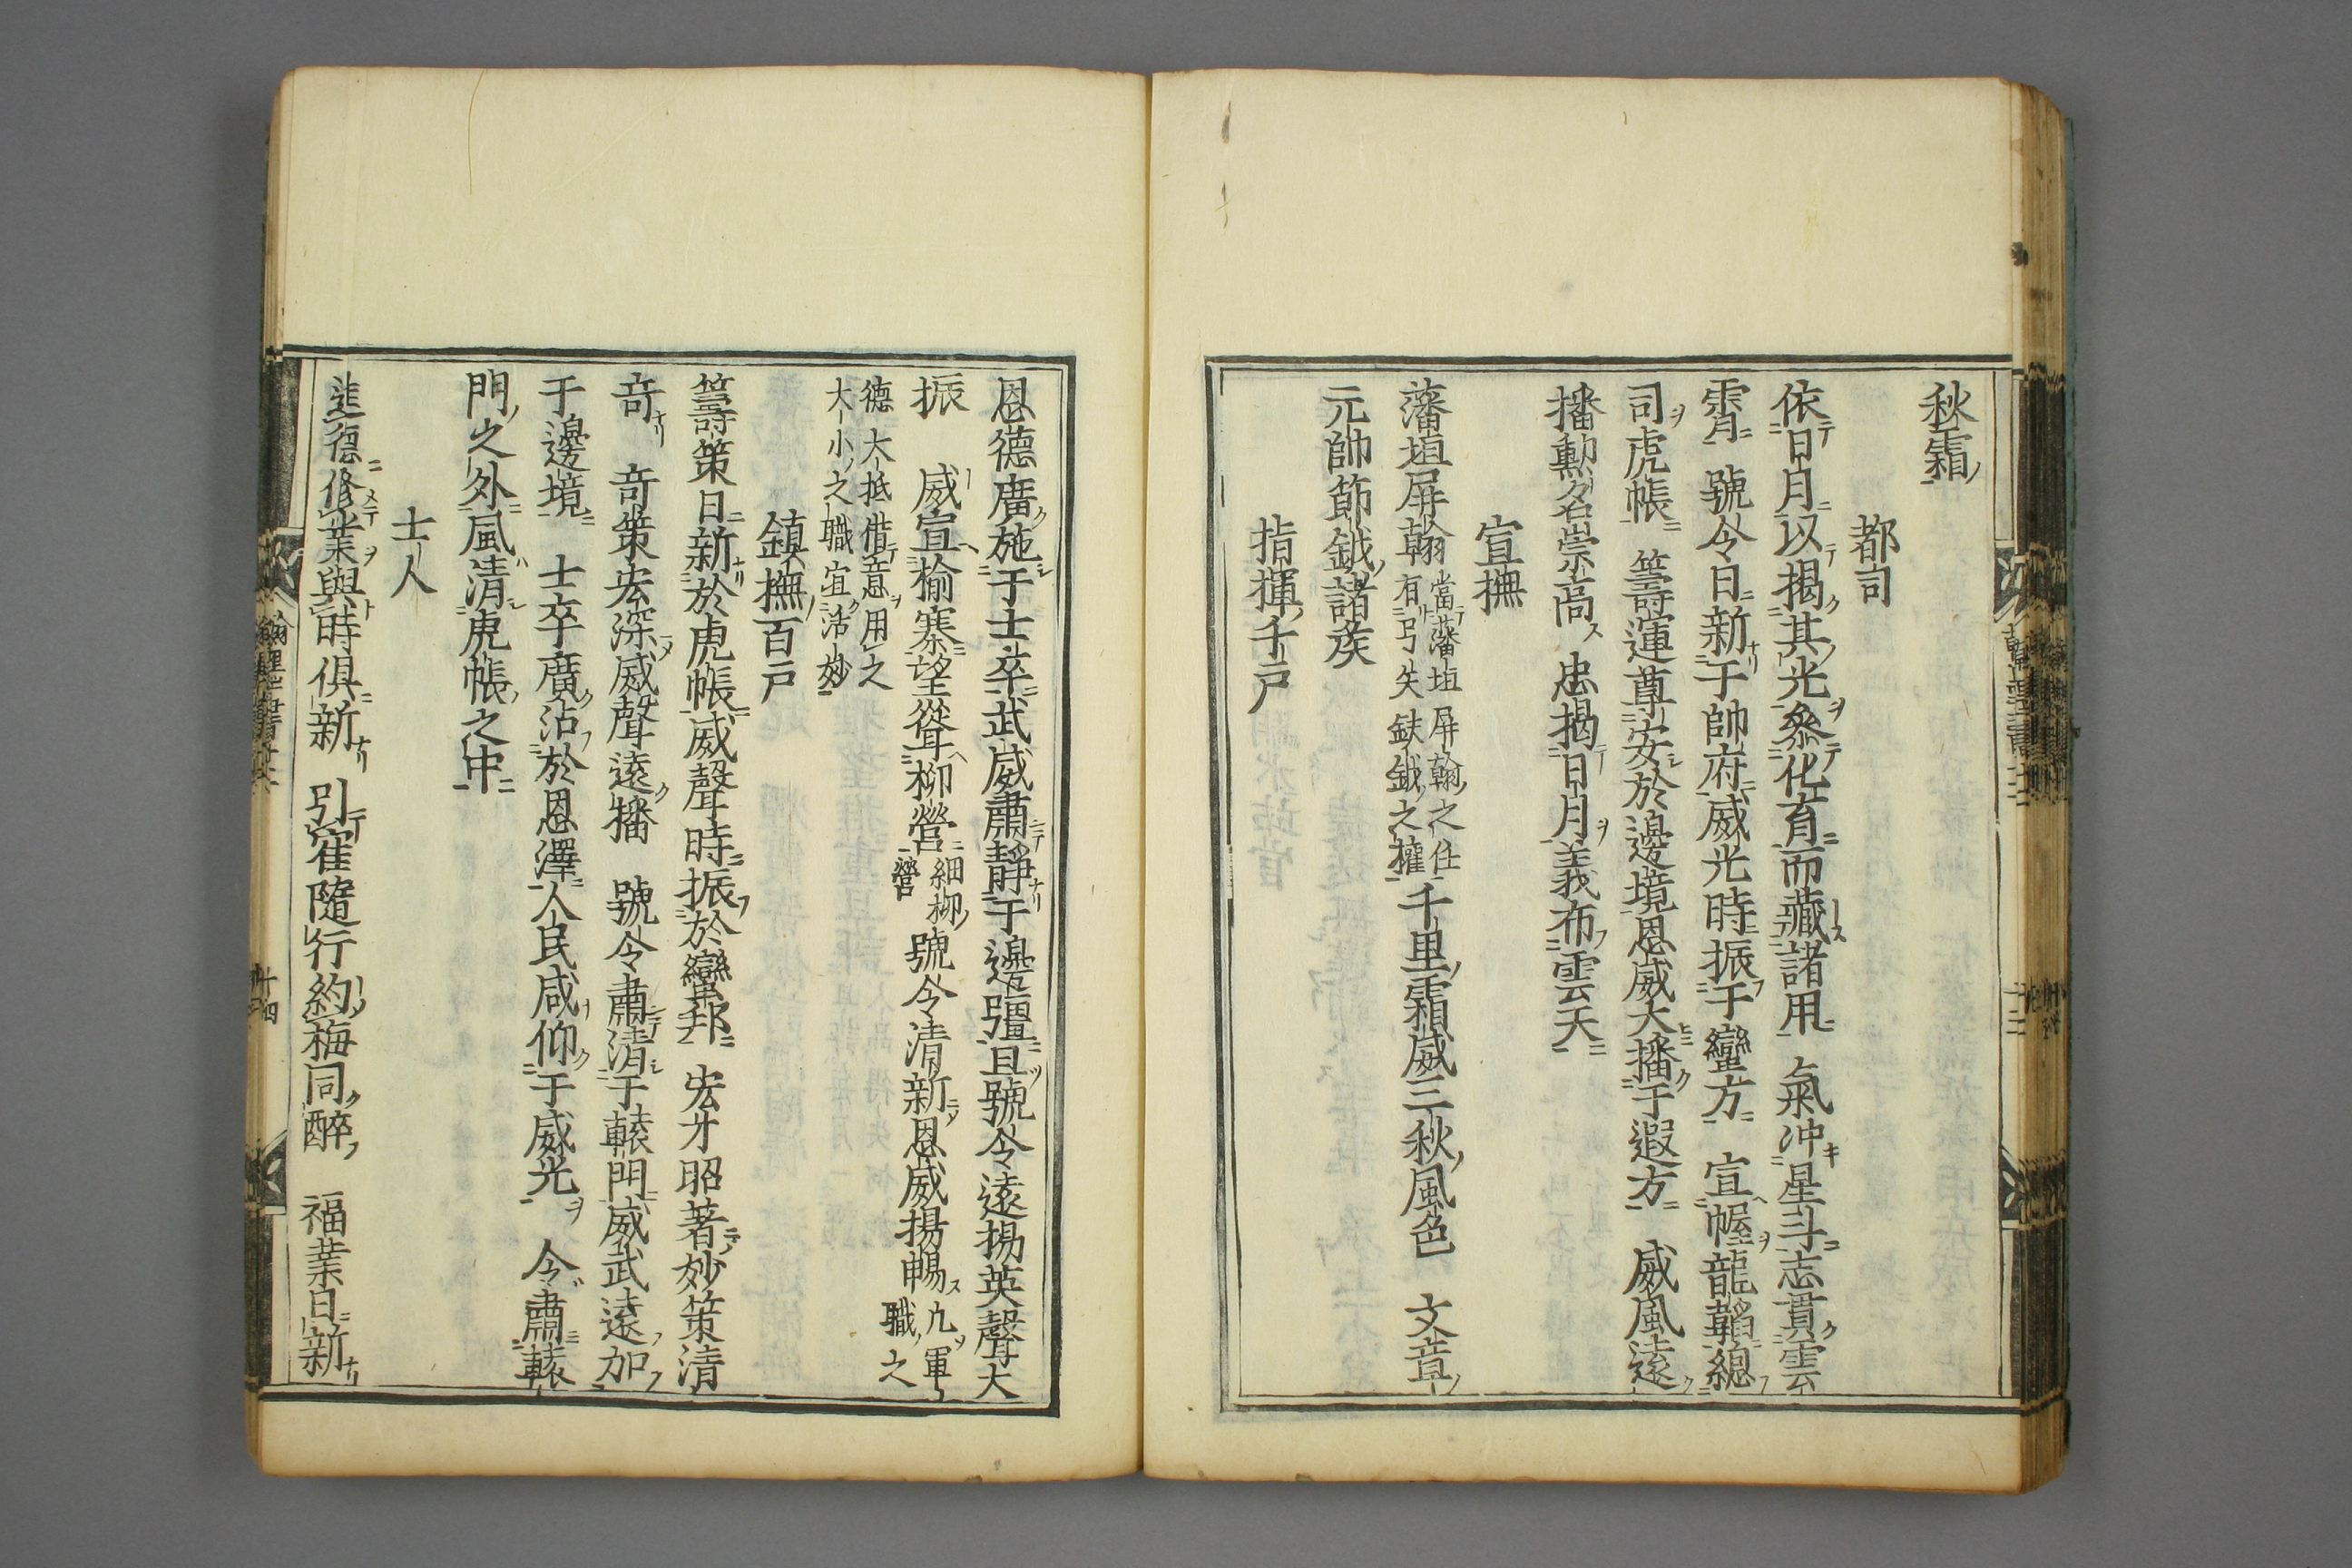 秋霜
都司
依日月以揭其光叅化育而藏諸用　氣冲星斗志貫雲
霄　號令日新于帥府威光時振于蠻方　宣幄龍韜總
司虎帳　籌運尊安於邊境恩威大播于遐方　威風遠
播勲名崇高　忠揭日月義布雲天
宣撫
藩垣屏翰
當藩垣屏翰之任
有弓矢鈇鉞之權
千里霜威三秋風色　文章
元帥節鉞諸矦
指揮千戸
恩德廣施于士卒武威肅靜于邊疆且號令遠揚英聲大
振　威宣榆寨望聳柳營
細柳
營
號令清新恩威揚暢
九軍
職之
德大抵借意用之
大小之職宜活妙
鎮撫百戸
籌策日新於虎帳威聲時振於蠻邦　宏才昭著妙策清
奇　奇策宏深威聲遠播　號令肅清于轅門威武遠加
于邊境　士卒廣沾於恩澤人民咸仰于威光　令肅轅
門之外風清虎帳之中
士人
進德修業與時俱新　引寉隨行約梅同醉　福業日新
十四